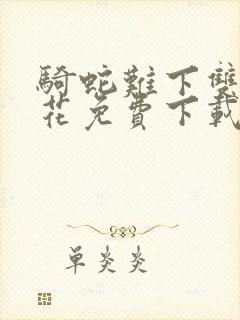 騎蛇難下雙
花免費下載
單炎炎